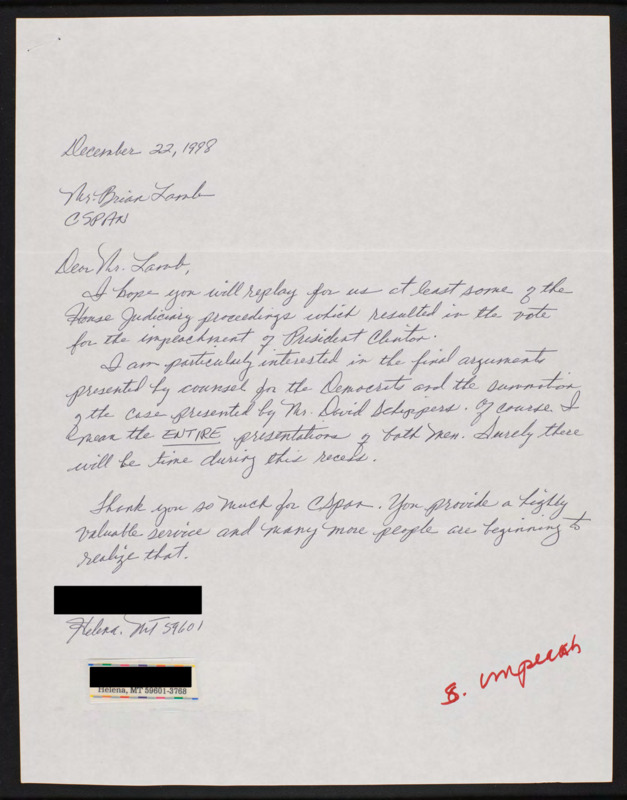 December 22, 1998
Mr. Brian Lamb
CSPAN
Dear Mr. Lamb,
I hope you will replay for us at least some of the
House Judiciary proceedings which resulted in the vote
for the impeachment of President Clinton.
I am particularly interested in the final arguments
presented by counsel for the Democrats and the summation
of the case presented by Mr. David Schippers. Of course I
mean the ENTIRE presentations of both men. Surely there
will be time during this recess.
Thank you so much for CSpan. You provide a highly
valuable service and many more people are beginning to
realize that.
Helena, MT 59601
Helena, MT 59601-3768